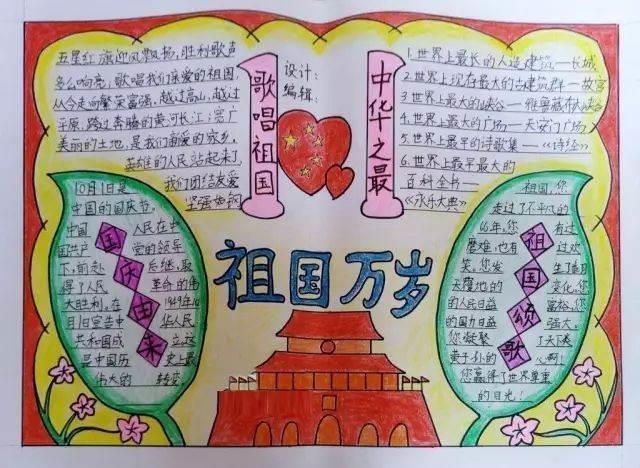 五星红旗迎风飘扬，胜利歌声
多么响亮，歌唱我们亲爱的祖国，
从今走向繁荣富强，越过高山，越过
平原，跨过奔腾的黄河长江；宽广
美丽的土地，是我们亲爱的家乡，
英雄的人民站起来了，
我们团结友爱
坚强如钢
歌唱祖国
设计：
编辑：
中华之最
1.世界上最长的人造建筑—长城
2.世界上现存最大的古建筑群—故宫
3.世界上最大的峡谷—雅鲁藏布大峡谷
4.世界上最大的广场—天安门广场
5.世界上最早的诗歌集—《诗经》
6.世界上最早最大的
百科全书—
《永乐大典》
祖国万岁
10月1日是
中国的国庆节，
中国 人民在中
国共产 党的领导
下，前赴 后继，取
得了人民 革命的伟
大胜利。在 1949年10
月1日宣告中 华人民
共和国成 立，这
是中国历 史上最
伟大的 转变。
国庆由来
祖国，您
走过了不平凡的
66年，您 有过
磨难，也有 过欢
笑，您发 生了翻
天覆地的 变化，您
的人民日益 富裕，您
的国力日益 强大，
您凝聚 了天下
黄子孙的 心啊！
您赢得了世界尊重
的目光！
祖国颂歌